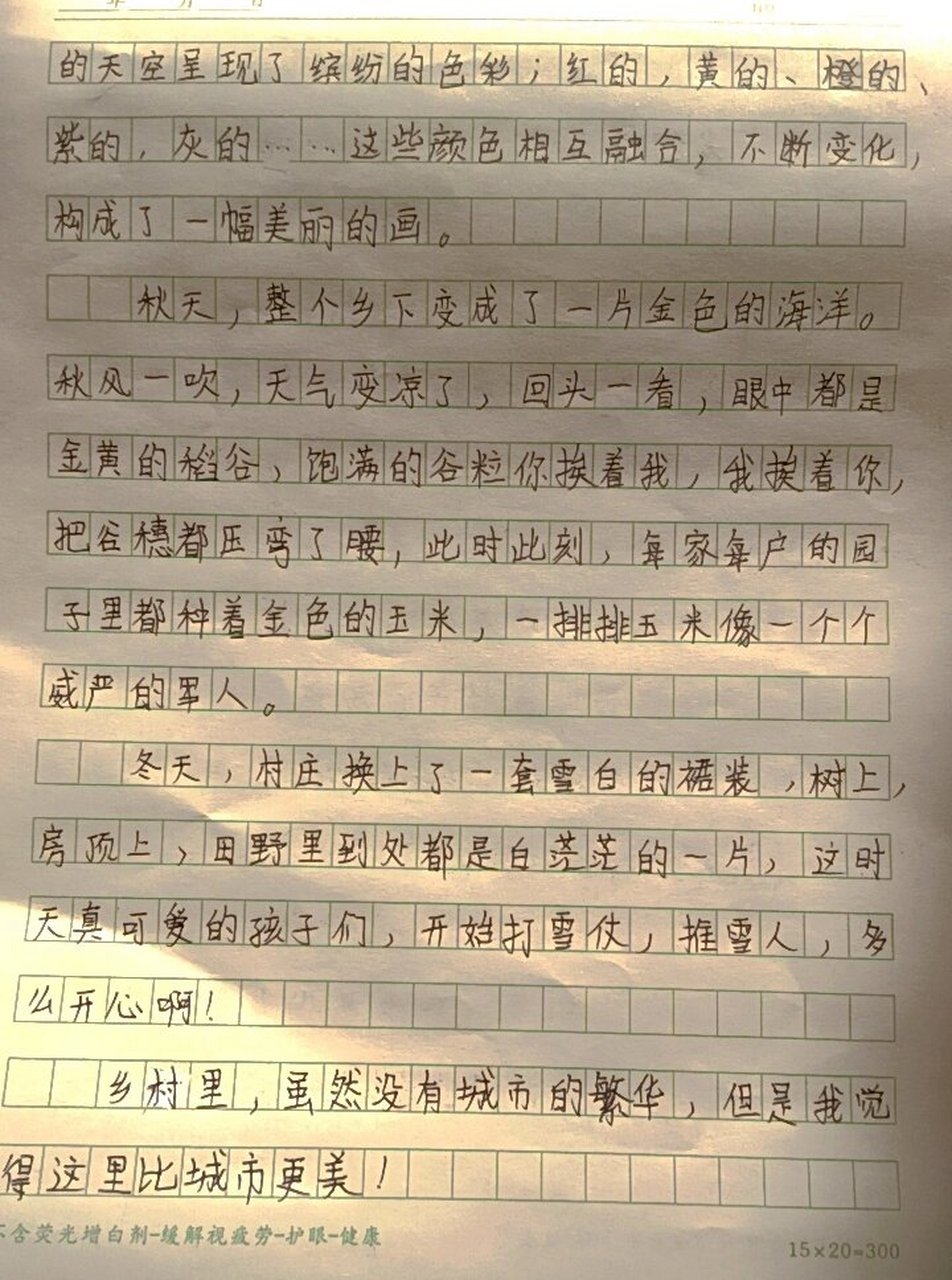 年 月 日
的天空呈现了缤纷的色彩；红的，黄的、橙的、
紫的，灰的……这些颜色相互融合，不断变化，
构成了一幅美丽的画。
秋天，整个乡下变成了一片金色的海洋。
秋风一吹，天气变凉了，回头一看，眼中都是
金黄的稻谷，饱满的谷粒你挨着我，我挨着你，
把谷穗都压弯了腰，此时此刻，每家每户的园
子里都种着金色的玉米，一排排玉米像一个个
威严的军人。
冬天，村庄换上了一套雪白的裙装，树上，
房顶上，田野里到处都是白茫茫的一片，这时
天真可爱的孩子们，开始打雪仗，推雪人，多
么开心啊！
乡村里，虽然没有城市的繁华，但是我觉
得这里比城市更美！
不含荧光增白剂-缓解视疲劳-护眼-健康
15×20=300